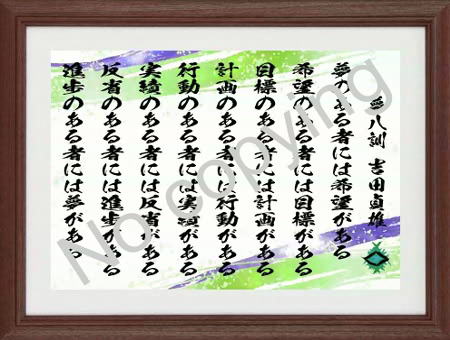 夢八訓 吉田貞雄
夢のある者には希望がある
希望のある者には目標がある
目標のある者には計画がある
計画のある者には行動がある
行動のある者には実績がある
実績のある者には反省がある
反省のある者には進歩がある
進歩のある者には夢がある
No copying